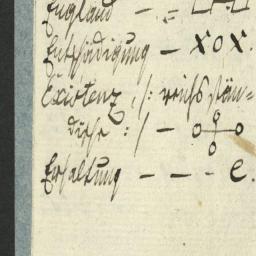 England –
Entschädigung – xox.
Existenz, /: reichsstän=
dische :/ –
Erhaltung – – – e.